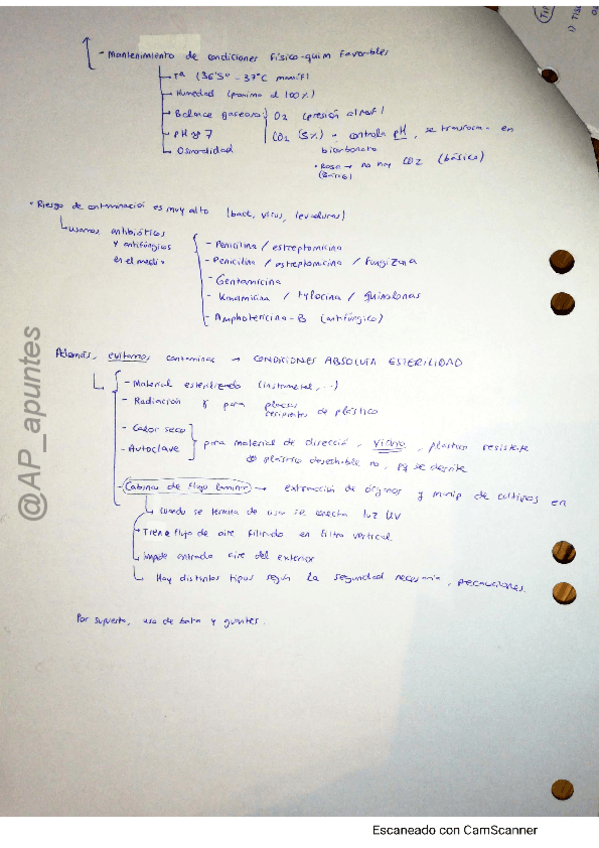 - Mantenimiento de condiciones físico-quim favorables
Tª (36'5º - 37ºC mamíf)
Humedad (próximo al 100%)
Balance gaseoso O2 (presión atmosf)
CO2 (5%) - controla pH, se transforma en bicarbonato
• Rosa → no hay CO2 (básico)
(Básico)
pH ≈ 7
Osmolaridad
• Riesgo de contaminación es muy alto (bact, virus, levaduras)
usamos antibióticos
y antifúngicos
en el medio
- Penicilina / estreptomicina
- Penicilina / estreptomicina / Fungizona
- Gentamicina
- Kanamicina / tylocina / quinolonas
- Amphotericina-B (antifúngico)
Además, evitamos contaminar → CONDICIONES ABSOLUTA ESTERILIDAD
- Material esterilizado (instrumental, ...)
- Radiación γ para placas
recipientes de plástico
- Calor seco
- Autoclave
para material de disección, vidrio, plástico resistente
plástico desechable no, pq se derrite
- Cabina de flujo laminar → extracción de órganos y manip de cultivos en
cuando se termina de usar se conecta luz UV
Tiene flujo de aire filtrado en filtro vertical
impide entrada aire del exterior
Hay distintos tipos según la seguridad necesaria, precauciones.
Por supuesto, uso de bata y guantes.
@AP_apuntes
Escaneado con CamScanner